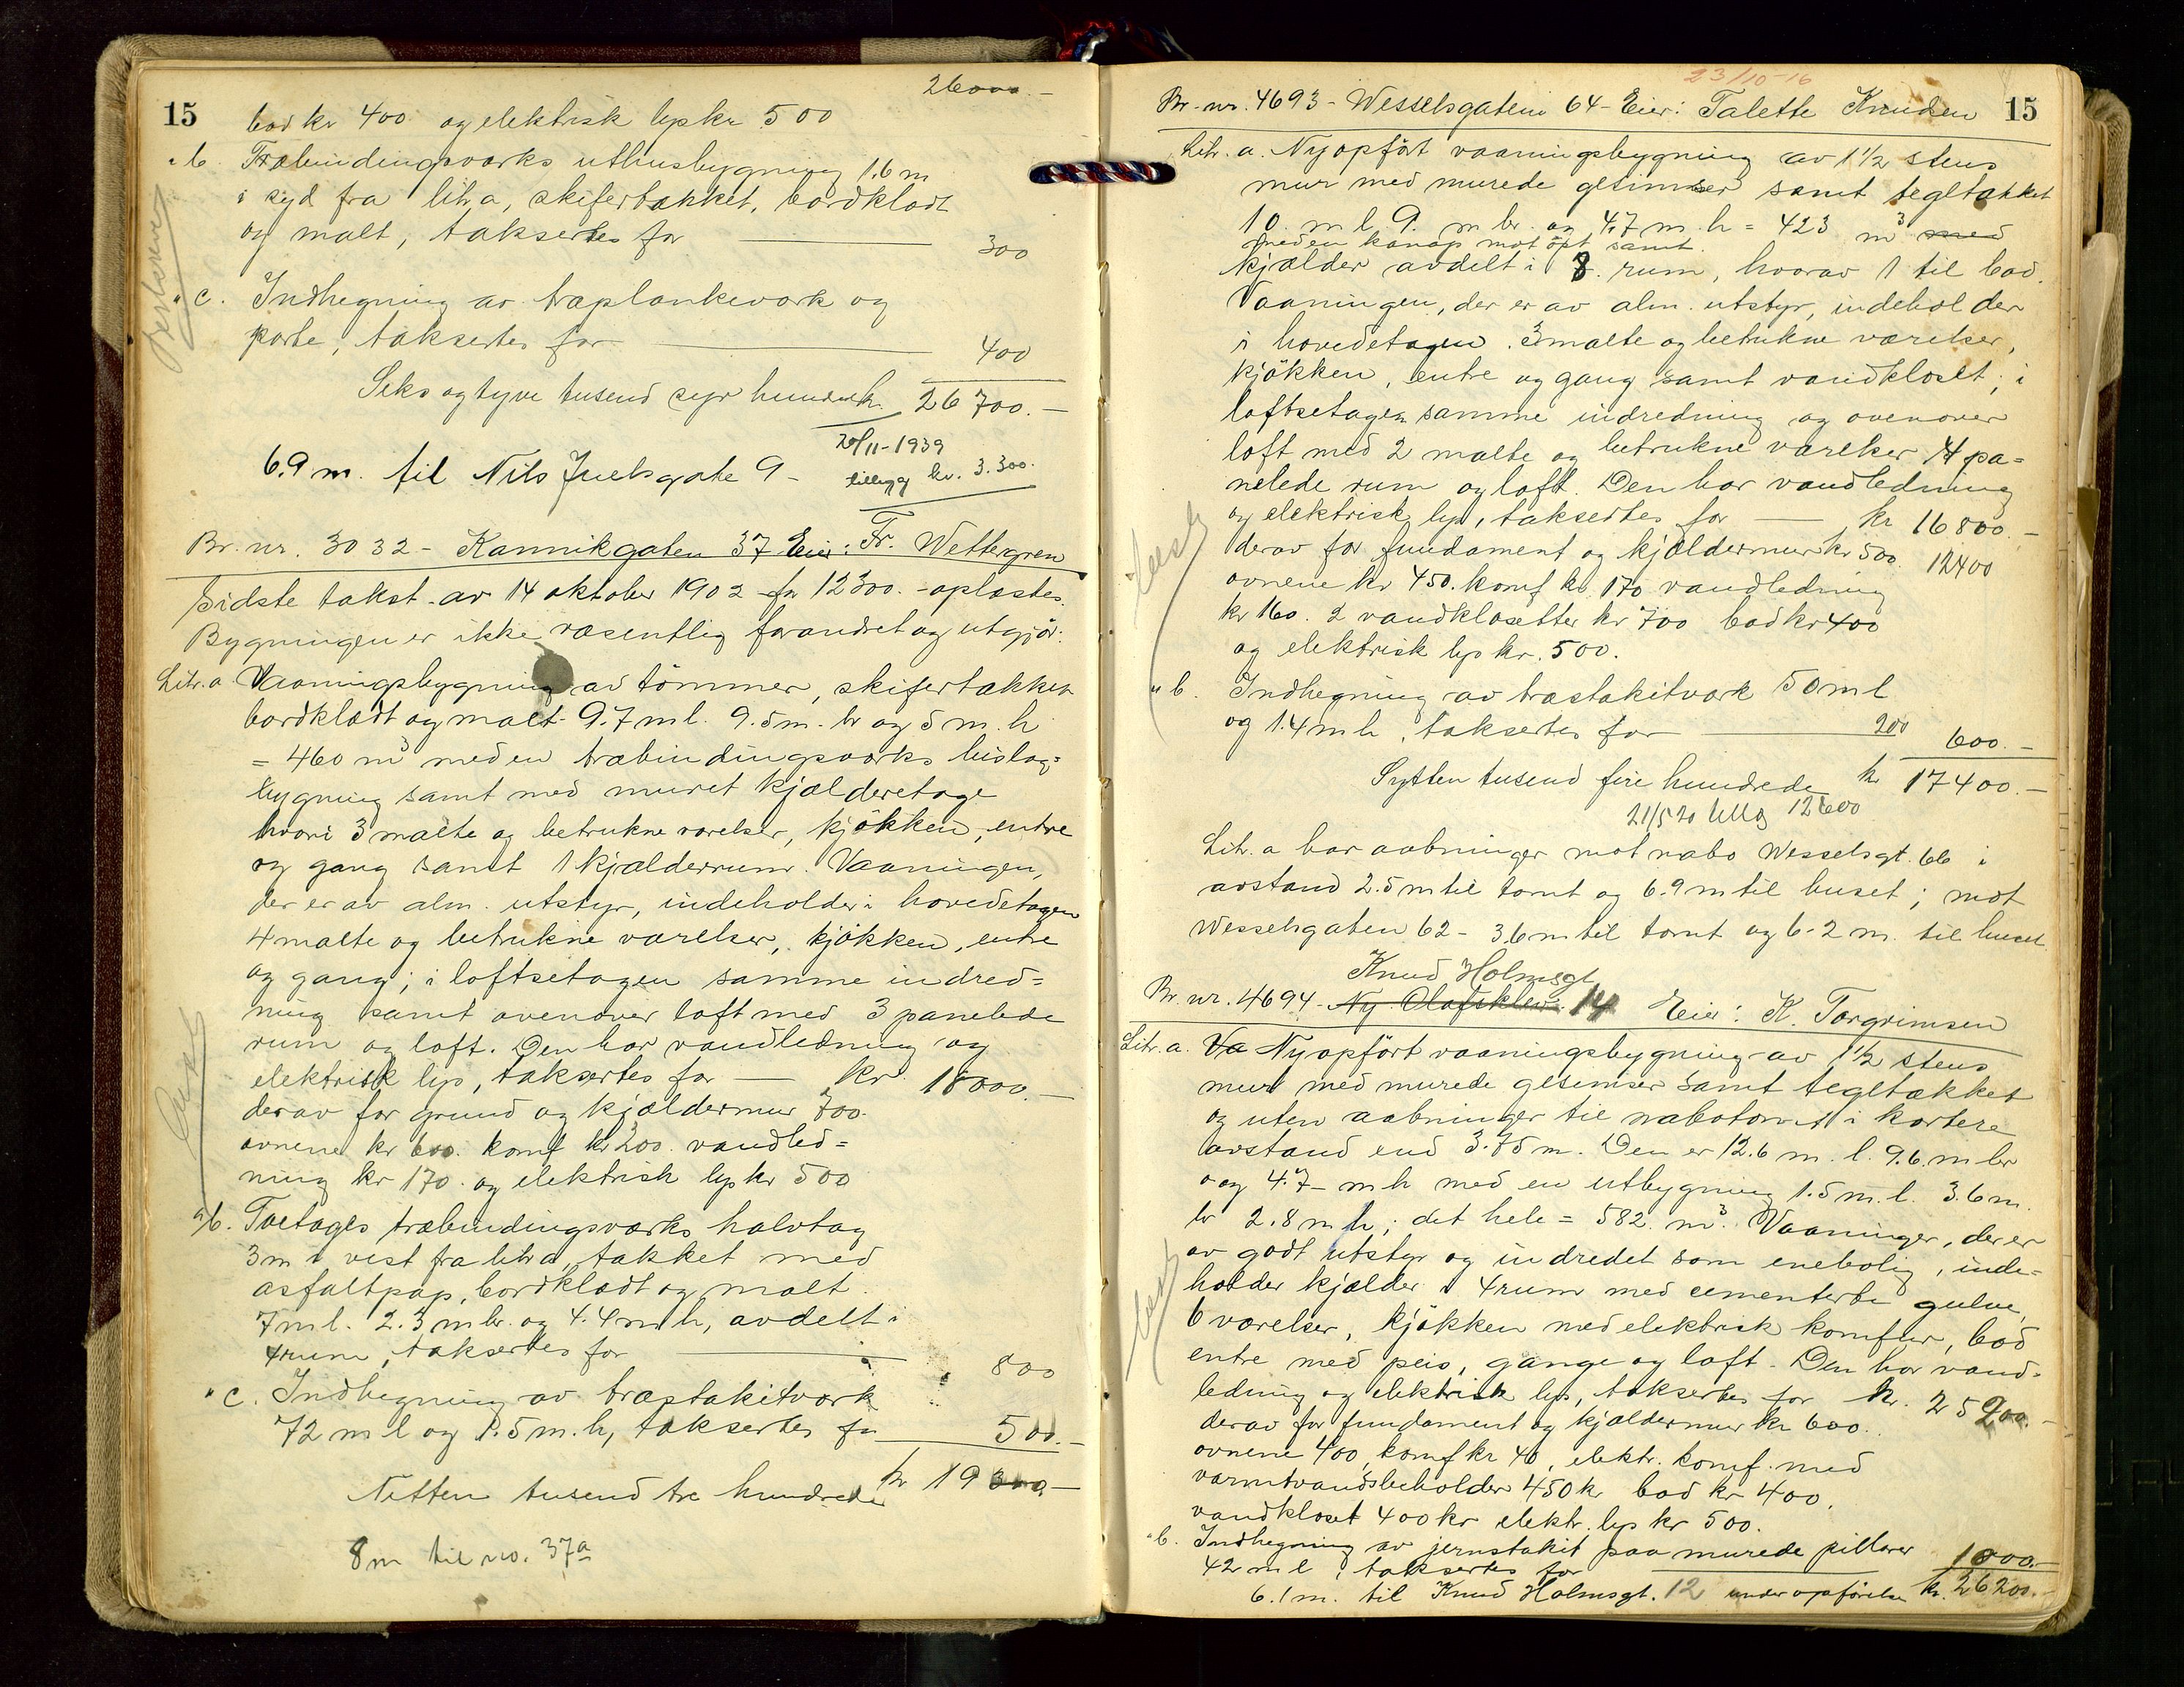 26000.-
15
bad kr 400 og elektrisk lys kr 500
" b. Træbindingsværks uthusbygning 1.6 m
i syd fra litr a, skifertækket, bordklædt
og malt, taksertes for 300
" c. Indhegning av træplankeværk og
porte, taksertes for 400
Seks og tyve tusend syv hundrede kr. 26700.-
6.9 m. til Nils Juelsgate 9 -
20/11-1939
tillegg kr. 3.300.
Br. nr. 3032 - Kannikgaten 37 Eier: Fr. Wettergren
Sidste takst av 14 oktober 1902 for 12300.- oplæstes.
Bygningen er ikke væsentlig forandret og utgjør:
Litr. a Vaaningsbygning av tömmer, skifertækket
bordklædt og malt - 9.7 m l. 9.5 m. br og 5 m. h
= 460 m³ med en træbindingsværks bislag=
bygning samt med muret kjælderetage
hvori 3 malte og betrukne værelser, kjökken, entre
og gang samt 1 kjælderrum. Vaaningen,
der er av alm. utstyr, indeholder i hovedetagen
4 malte og betrukne værelser, kjökken, entre
og gang; i loftsetagen samme indred=
ning samt ovenover loft med 3 panelede
rum og loft. Den har vandledning og
elektrisk lys, taksertes for kr 18000.-
derav for grund og kjældermur 700.
ovnene kr 600. komf kr 200. vandled=
ning kr 170. og elektrisk lys kr 500
" b. Toetages træbindingsværks halvtag
3 m i vest fra litr a, tækket med
asfaltpap, bordklædt og malt.
7 m l. 2.3 m br. og 4.4 m h, avdelt i
4 rum, taksertes for 800
" c. Indhegning av træstakitværk
72 m l og 1.5 m. h, taksertes for 500.-
Nitten tusend tre hundrede kr 19300.-
8 m til no. 37a
23/10-16
Br. nr. 4693 - Wesselsgaten 64 - Eier: Talette Knudsen 15
Litr. a. Nyopfört vaaningsbygning av 1 1/2 stens
mur med murede gesimser samt tegltækket
10 m l 9. m br. og 4.7 m. h = 423 m³ med
med en kanap mot öst samt
kjælder avdelt i 8. rum, hvorav 1 til bad.
Vaaningen, der er av alm. utstyr, indeholder
i hovedetagen 3 malte og betrukne værelser,
kjökken, entre og gang samt vandkloset; i
loftsetagen samme indredning og ovenover
loft med 2 malte og betrukne værelser 4 pa=
nelede rum og loft. Den har vandledning
og elektrisk lys, taksertes for kr 16800.-
derav for fundament og kjældermur kr 500. 12400
ovnene kr 450. komf kr. 170 vandledning
kr 160. 2 vandklosetter kr 700 bad kr 400
og elektrisk lys kr. 500.
" b. Indhegning av træstakitværk 50 m l
og 1.4 m h, taksertes for 200 600.-
Sytten tusend fire hundrede kr 17400.-
21/5 20 tillæg 12600
Litr. a har aabninger mot nabo Wesselsgt. 66 i
avstand 2.5 m til tomt og 6.9 m til huset; mot
Wesselsgaten 62 - 3.6 m til tomt og 6.2 m. til huset.
Knud Holmsgt
Br. nr. 4694 - Ny Olafsklev. 14 Eier: K. Torgrimsen
Litr. a. Va Nyopfört vaaningsbygning av 1 1/2 stens
mur med murede gesimser samt tegltækket
og uten aabninger til nabotomt i kortere
avstand end 3.75 m. Den er 12.6 m. l. 9.6. m br
og 4.7 m h med en utbygning 1.5 m. l. 3.6 m.
br 2.8 m h; det hele = 582. m³. Vaaningen, der er
av godt utstyr og indredet som enebolig, inde=
holder kjælder i 4 rum med cementerte gulve,
6 værelser, kjökken med elektrisk komfur, bad
entre med peis, gange og loft. Den har vand=
ledning og elektrisk lys, taksertes for kr. 25200.-
derav for fundament og kjældermur kr 600.
ovnene 400, komf kr 40, elektr. komf. med
varmtvandsbeholder 450 kr bad kr 400,
vandkloset 400 kr elektr. lys kr 500.
" b. Indhegning av jernstakit paa murede pillarer
42 m l, taksertes for 1000.-
6.1 m. til Knud Holmsgt. 12 under opförelse kr. 26200.-